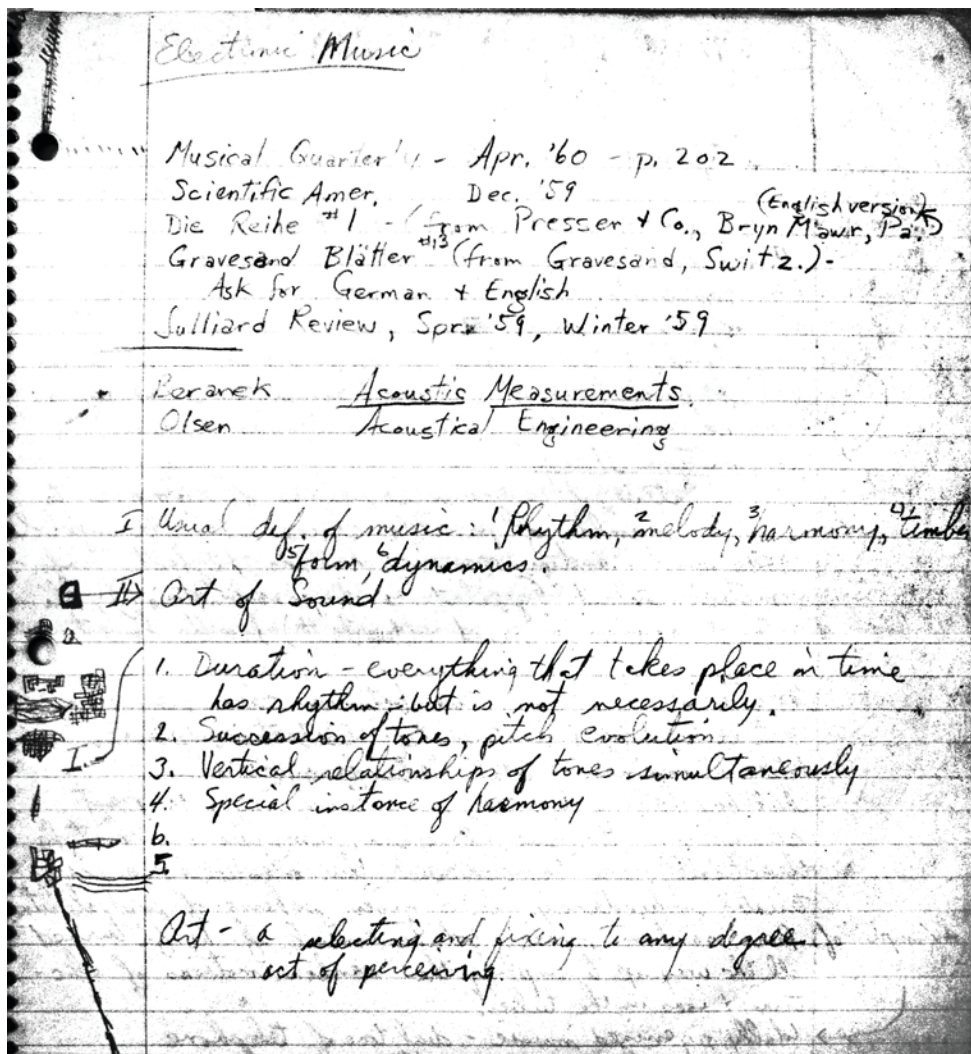 Electronic Music
Musical Quarterly - Apr. '60 - p. 202
Scientific Amer. Dec. '59
(English version)
Die Reihe #1 - (from Presser & Co., Bryn Mawr, Pa.)
Gravesand Blätter #13 (from Gravesand, Switz.) -
Ask for German & English
Julliard Review, Spr. '59, Winter '59
Beranek Acoustic Measurements
Olsen Acoustical Engineering
I Usual def. of music: 1 Rhythm, 2 melody, 3 harmony, 4 timber
5 form, 6 dynamics.
II Art of Sound
1. Duration - everything that takes place in time
has rhythm - but is not necessarily.
I. 2. Succession of tones, pitch evolution
3. Vertical relationships of tones simultaneously
4. Special instance of harmony
6.
5.
Art - a selecting and fixing to any degree
act of perceiving.